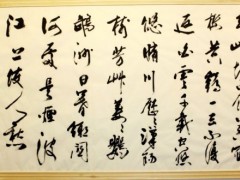 樓黃鶴一去不復
返白雲千載空悠
悠晴川歷〻漢陽
樹芳艸萋〻鸚
鵡洲日暮鄉關
何處是煙波
江上使人愁